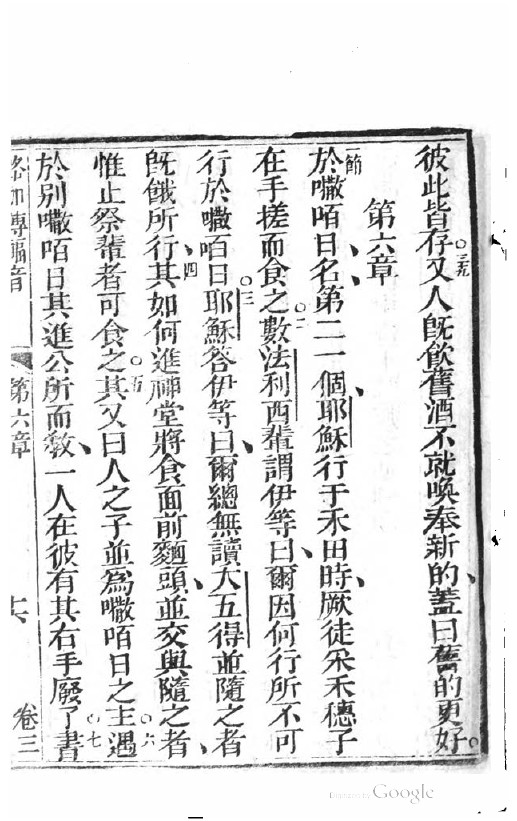 彼此皆存。三九又人旣飲舊酒不就喚奉新的、蓋曰舊的更好。
第六章
一節於嘞咟日、名、第二一個、耶穌行于禾田時、厥徒采禾穗子
在手搓而食之。二數法利西輩謂伊等曰、爾因何行所不可
行於嘞咟日。三耶穌答伊等曰、爾總無讀大五得並隨之者、
旣餓所行、四其如何進神堂將食面前麵頭、並交與隨之者
惟止祭輩者可食之。五其又曰人之子並為嘞咟日之主。六遇
於別嘞咟日其進公所而教、一人在彼有其右手廢了。七書
路加傳福音 第六章 十六 卷三
Digitized by Google